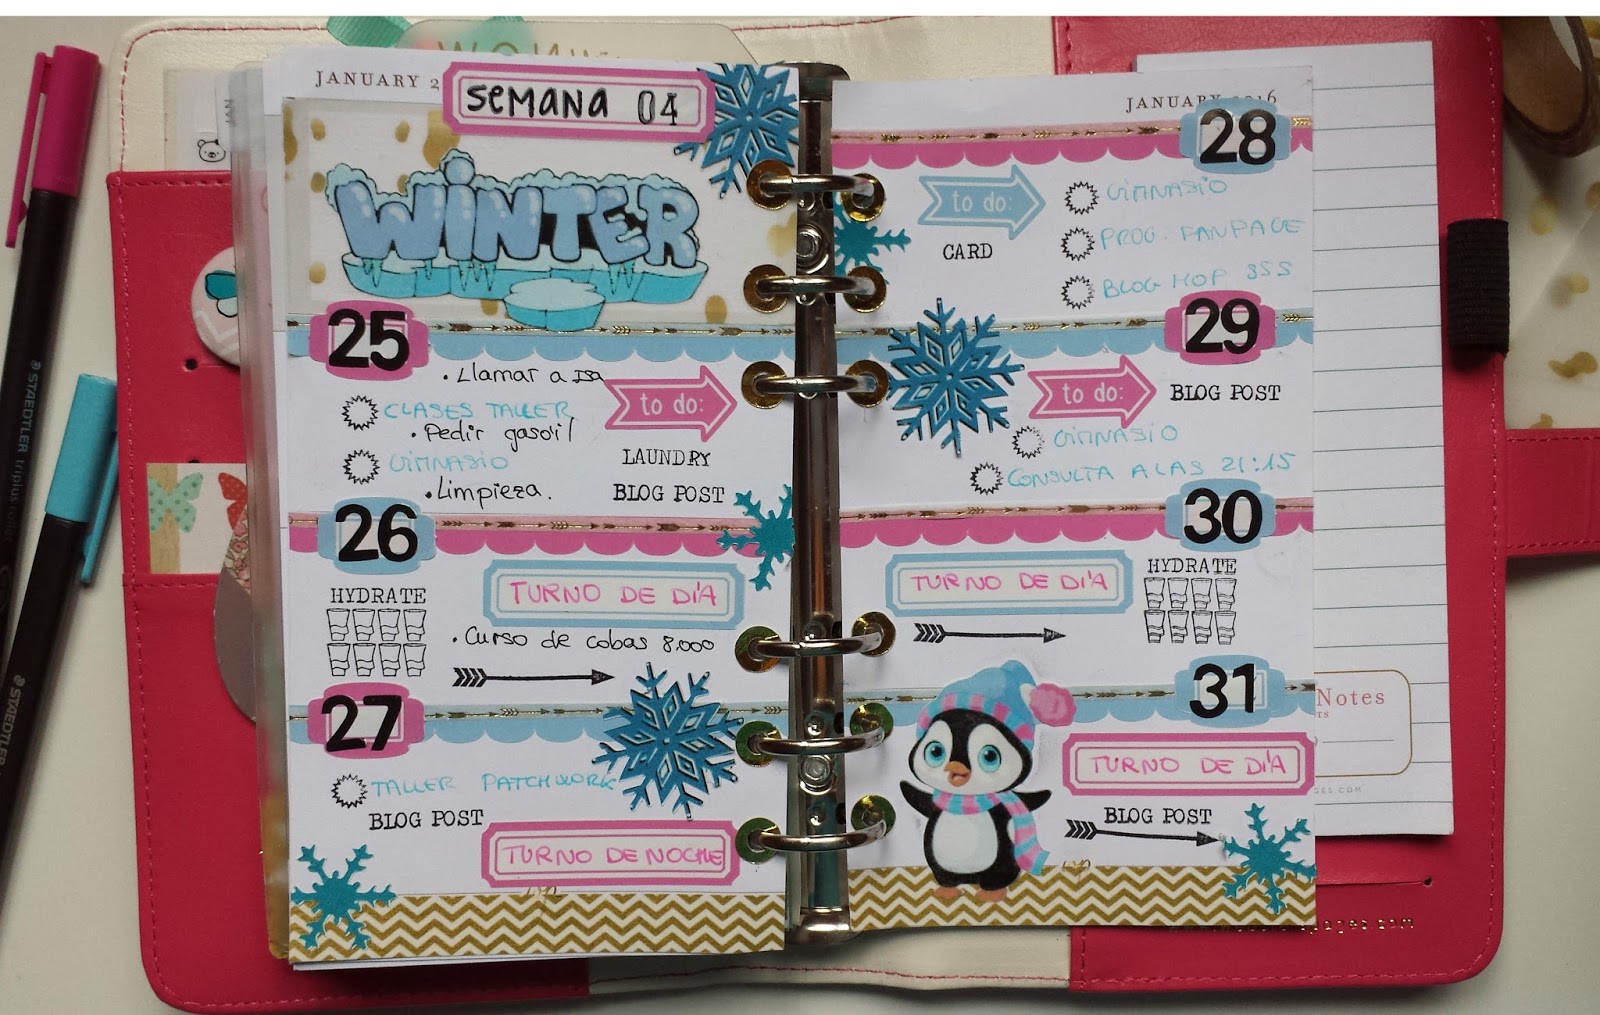 JANUARY 2
SEMANA 04
WINTER
25
• Llamar a Isa
CLASES TALLER
• Pedir gasoil
GIMNASIO
• Limpieza.
to do:
LAUNDRY
BLOG POST
26
HYDRATE
TURNO DE DÍA
• Curso de cobas 8.000
27
TALLER PATCHWORK
BLOG POST
TURNO DE NOCHE
JANUARY 2016
28
to do:
CARD
GIMNASIO
PROG. FANPAGE
BLOG HOP 355
29
to do:
BLOG POST
GIMNASIO
CONSULTA A LAS 21:15
30
TURNO DE DÍA
HYDRATE
31
TURNO DE DÍA
BLOG POST
Notes
STAEDTLER triplus
STAEDTLER